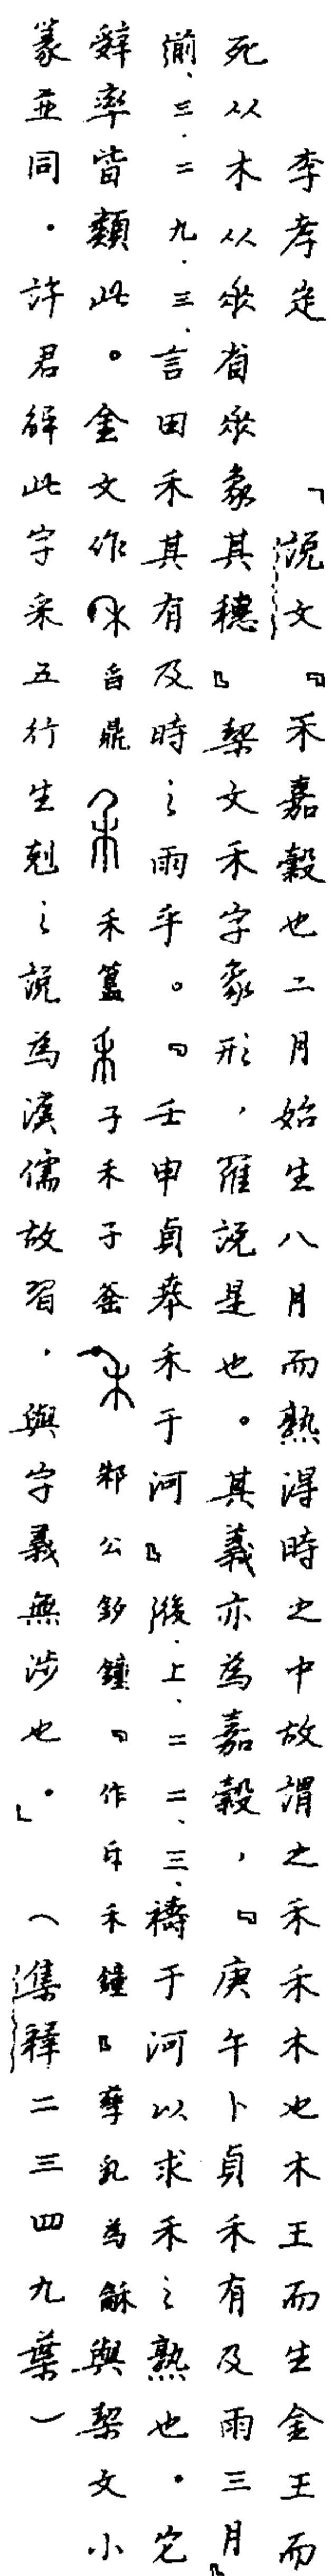 李孝定　「說文『禾嘉穀也二月始生八月而熟得時之中故謂之禾禾木也木王而生金王而
死从木从𠂹省𠂹象其穗』栔文禾字象形，羅說是也。其義亦為嘉穀，『庚午卜貞禾有及雨三月』
前、三、二九、三、言田禾其有及時之雨乎。『壬申貞𠦪禾于河』後、上、二二、三、禱于河以求禾之熟也。它
辭率皆類此。金文作舀鼎禾簋子禾子釜邾公釛鐘『作氒禾鐘』孳乳為龢與栔文小
篆並同。許君解此字采五行生剋之說為漢儒故習，與字義無涉也。」（集釋二三四九葉）